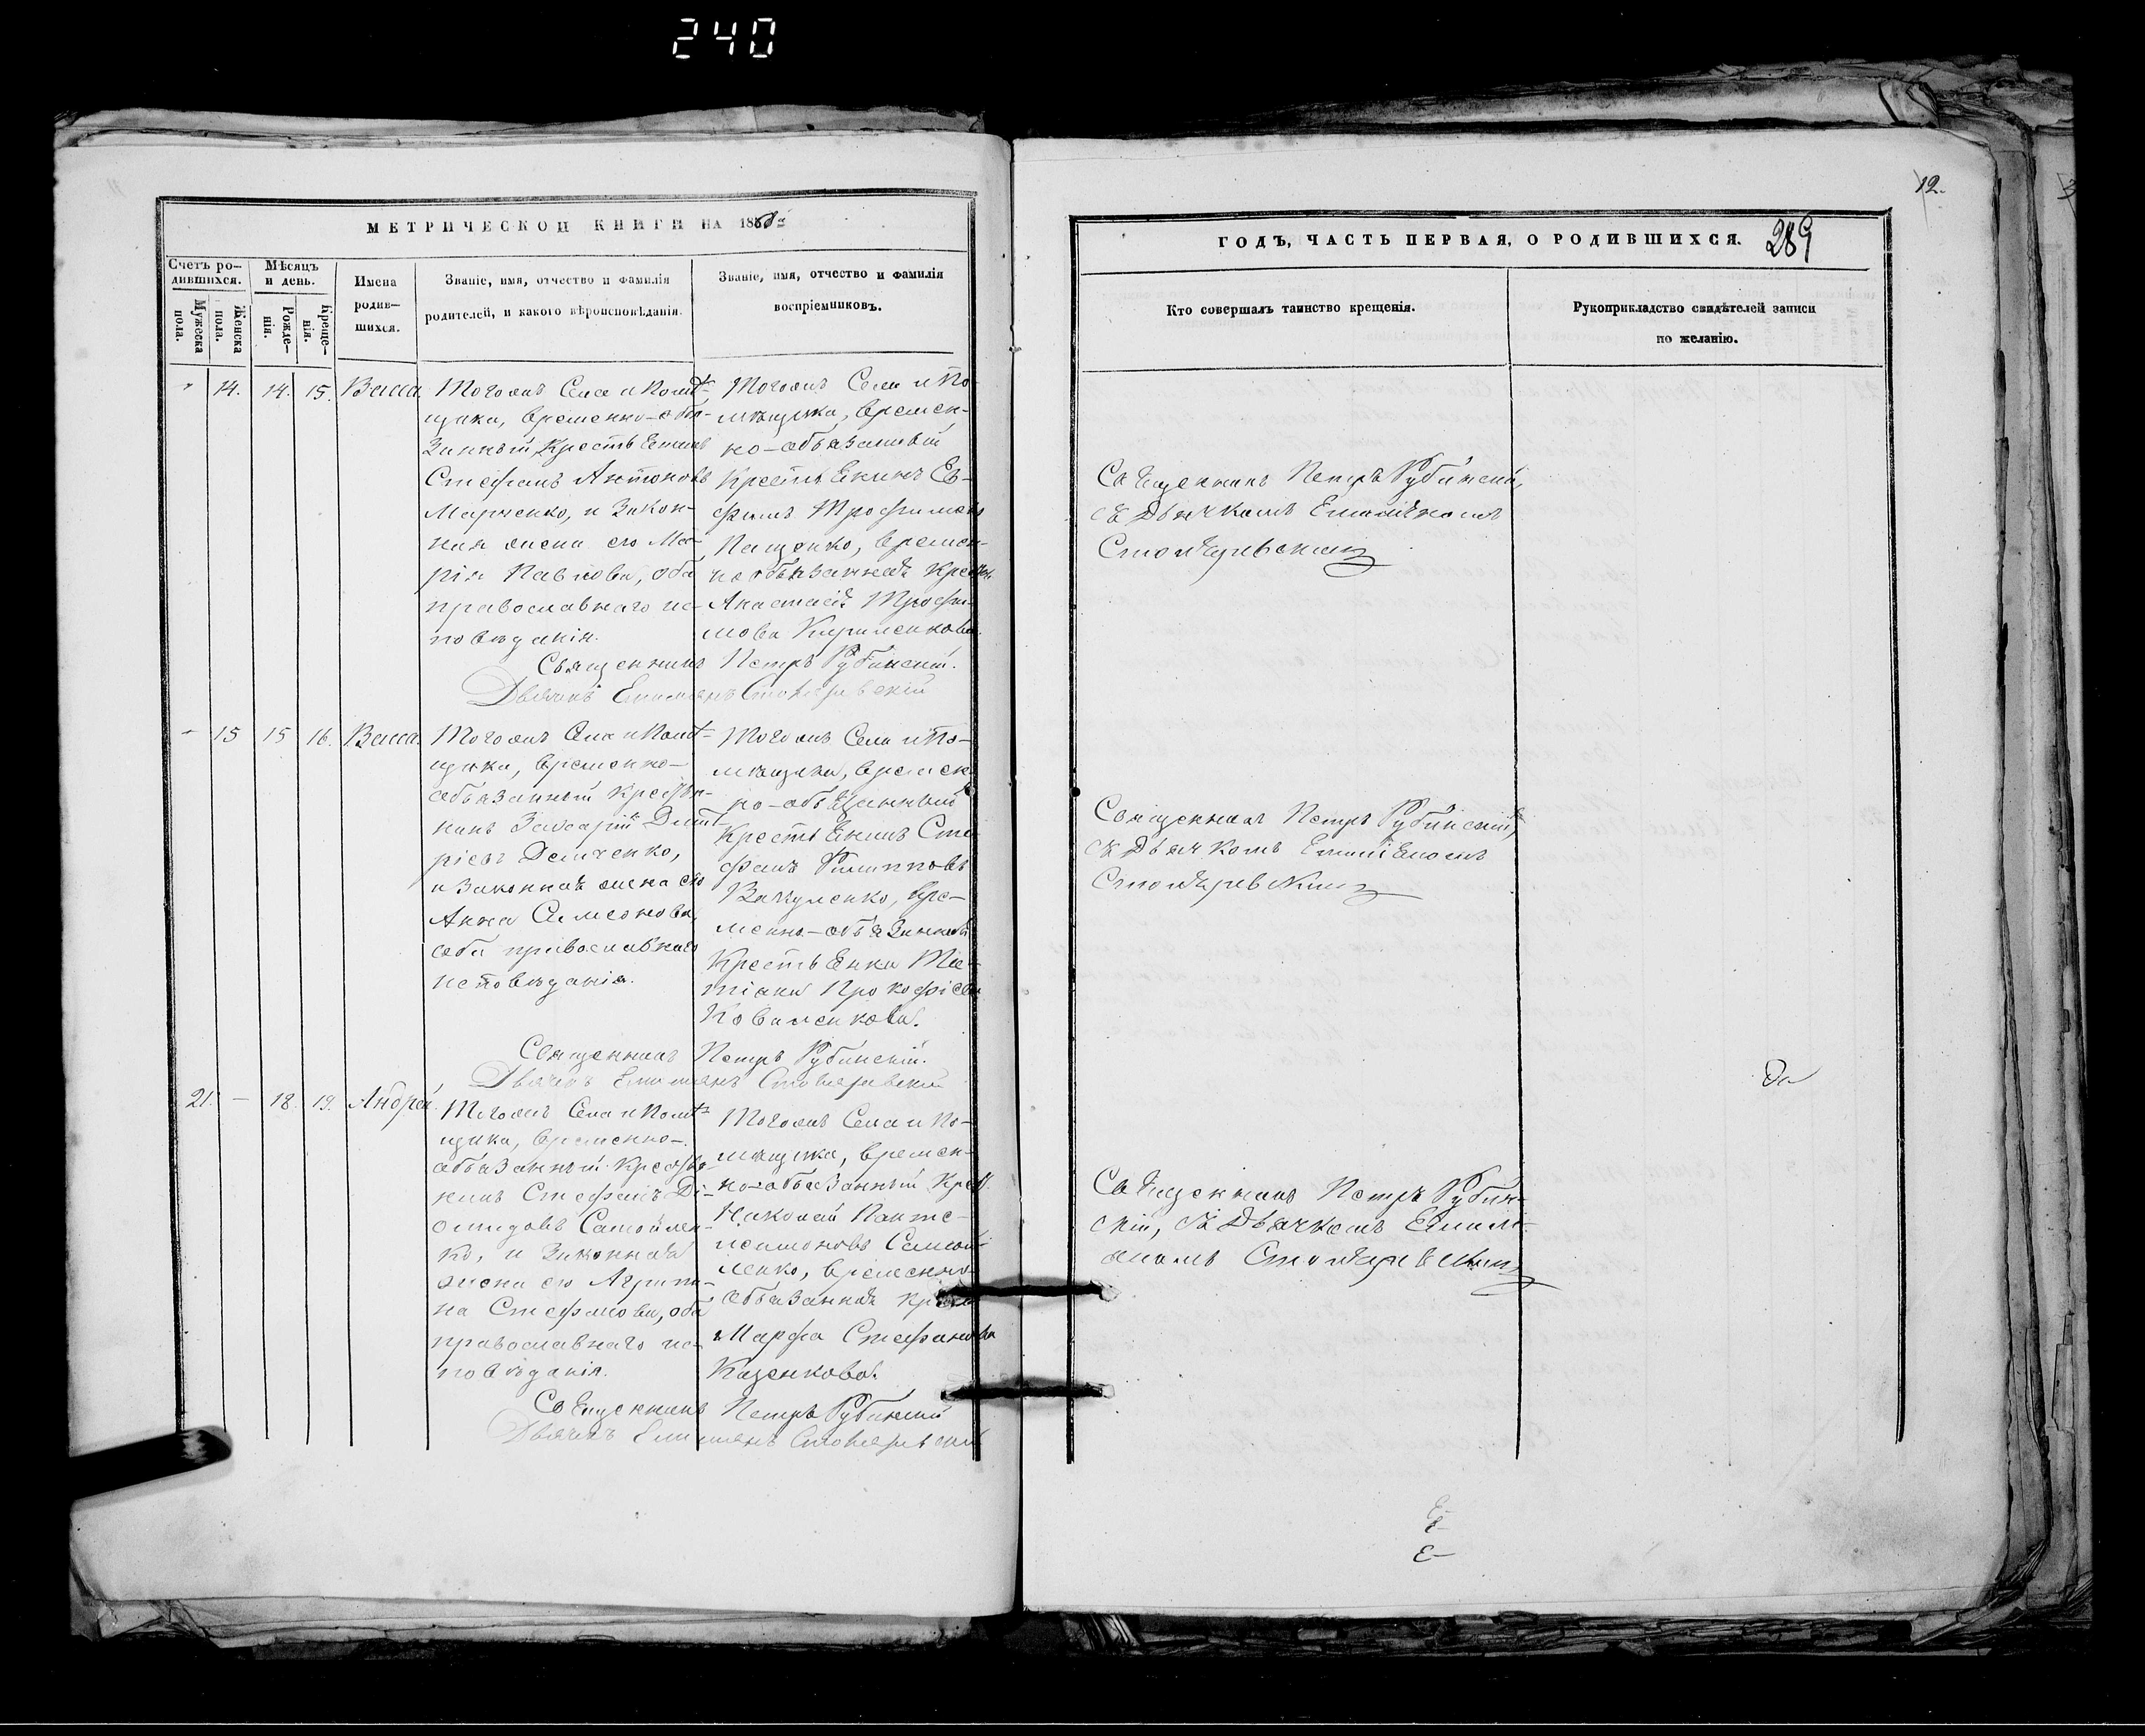 240
МЕТРИЧЕСКОЙ КНИГИ НА 186
Счетъ ро-
дившихся.
Мужеска
пола.
Женска
пола.
Мѣсяцъ
и день.
Рожде-
нія.
Креще-
нія.
Имена
родив-
шихся.
Званіе, имя, отчество и фамилія
родителей, и какого вѣроисповѣданія.
Званіе, имя, отчество и фамилія
воспріемниковъ.
14. 14. 15. Васса
Тогожъ Села и Помѣ-
щика, временно-обя-
занный Крестьянинъ
Стефанъ Антоновъ
Марченко, и Закон-
ная жена его Ма-
рія Павлова, оба
православнаго ис-
повѣданія.
Тогожъ Села и По-
мѣщика, времен-
но-обязанный
Крестьянинъ Еѳ-
фимъ Трофимовъ
Пащенко, времен-
нообязанная Крест.
Анастасія Трофи-
мова Кириленкова.
Священникъ Петръ Рубинскій.
Дьячокъ Емиліанъ Столяревскій
15 15 16. Васса.
Тогожъ Села и Помѣ-
щика, временно-
обязанный крестья-
нинъ Захарій Дмит-
ріевъ Демченко,
и Законная жена его
Анна Симеонова,
оба православнаго
исповѣданія.
Тогожъ Села и По-
мѣщика, времен-
но-обязанный
Крестьянинъ Сте-
фанъ Филипповъ
Вакуленко, вре-
менно-обязанная
Крестьянка Та-
тіана Прокофіева
Коваленкова.
Священникъ Петръ Рубинскій.
Дьячокъ Емиліанъ Столяревскій
21. — 18. 19. Андрей.
Тогожъ Села и Помѣ-
щика, временно-
обязанный Крестья-
нинъ Стефанъ Ді-
омидовъ Самойлен-
ко, и Законная
жена его Агрипи-
на Стефанова, оба
православнаго ис-
повѣданія.
Тогожъ Села и По-
мѣщика, времен-
но-обязанный Крест.
Николай Панте-
леимоновъ Самой-
ленко, временно-
обязанная Крест.
Марфа Стефанова
Священникъ Петръ Рубинскій
Дьячокъ Емиліанъ Столяревскій
12.
ГОДЪ, ЧАСТЬ ПЕРВАЯ, О РОДИВШИХСЯ. 289
Кто совершалъ таинство крещенія.
Рукоприкладство свидѣтелей записи
по желанію.
Священникъ Петръ Рубинскій,
съ Дьячкомъ Емиліаномъ
Столяревскимъ
Священникъ Петръ Рубинскій,
съ Дьячкомъ Емиліаномъ
Столяревскимъ
Священникъ Петръ Рубин-
скій, съ Дьячкомъ Емилі-
аномъ Столяревскимъ